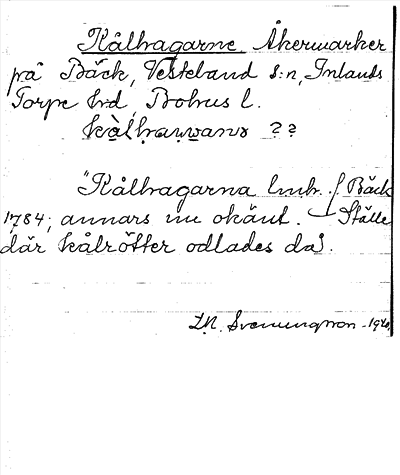 Kålhagarne Åkermarker
på Bäck, Västerland s:n, Inlands
Torpe hd, Bohus l.
kàlhawanx ??
"Kålhagarna lmh. f. Bäck
1784; annars nu okänt. Ställe
där kålrötter odlades då".
Svenungsson 1940